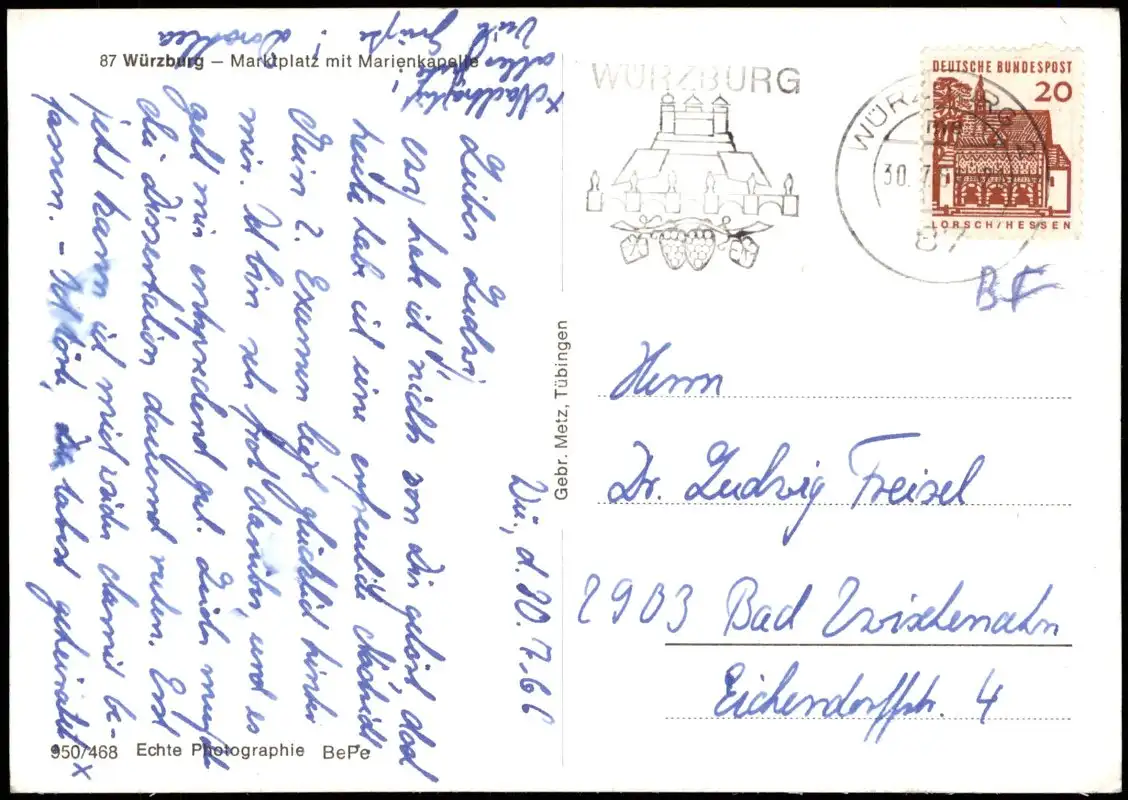 87 Würzburg – Marktplatz mit Marienkapelle
Wü., d. 30.7.66
Lieber Ludwig,
habe ich nichts von Dir gehört, doch
heute habe ich eine erfreuliche Nachricht
Mein 2. Examen liegt glücklich hinter
mir. Ich bin sehr froh darüber, und es
geht mir entsprechend gut. Leider mußte
die Dissertation dauernd ruhen. Erst
jetzt kann ich mich wieder damit be-
fassen. – Ich hörte, Du habest geheiratet x
x Nachträglich
alles Gute,
Viele Grüße!
Dorothea
950/468 Echte Photographie BePe
Gebr. Metz, Tübingen
WÜRZBURG
WÜRZBURG
30.7.
87
DEUTSCHE BUNDESPOST
20
LORSCH/HESSEN
Herrn
Dr. Ludwig Freisel
2903 Bad Zwischenahn
Eichendorffstr. 4